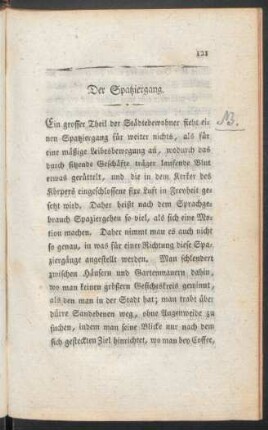 121
Der Spatziergang.
Ein grosser Theil der Städtebewohner sieht ei-
nen Spatziergang für weiter nichts, als für
eine mäßige Leibesbewegung an, wodurch das
durch sitzende Geschäfte träger laufende Blut
etwas gerüttelt, und die in dem Kerker des
Körpers eingeschlossene fixe Luft in Freyheit ge-
setzt wird. Daher heißt nach dem Sprachge-
brauch Spaziergehen so viel, als sich eine Mo-
tion machen. Daher nimmt man es auch nicht
so genau, in was für einer Richtung diese Spa-
ziergänge angestellt werden. Man schlendert
zwischen Häusern und Gartenmauern dahin,
wo man keinen größern Gesichtskreis gewinnt,
als den man in der Stadt hat; man trabt über
dürre Sandebenen weg, ohne Augenweide zu
suchen, indem man seine Blicke nur nach dem
sich gesteckten Ziel hinrichtet, wo man bey Coffee,
NB.